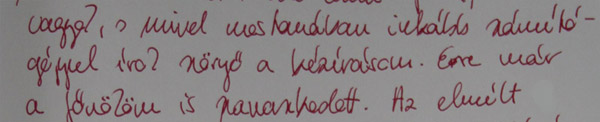 vagyok, s mivel mostanában inkább számító-
géppel írok szörnyű a kézírásom. Erre már
a főnököm is panaszkodott. Az elmúlt